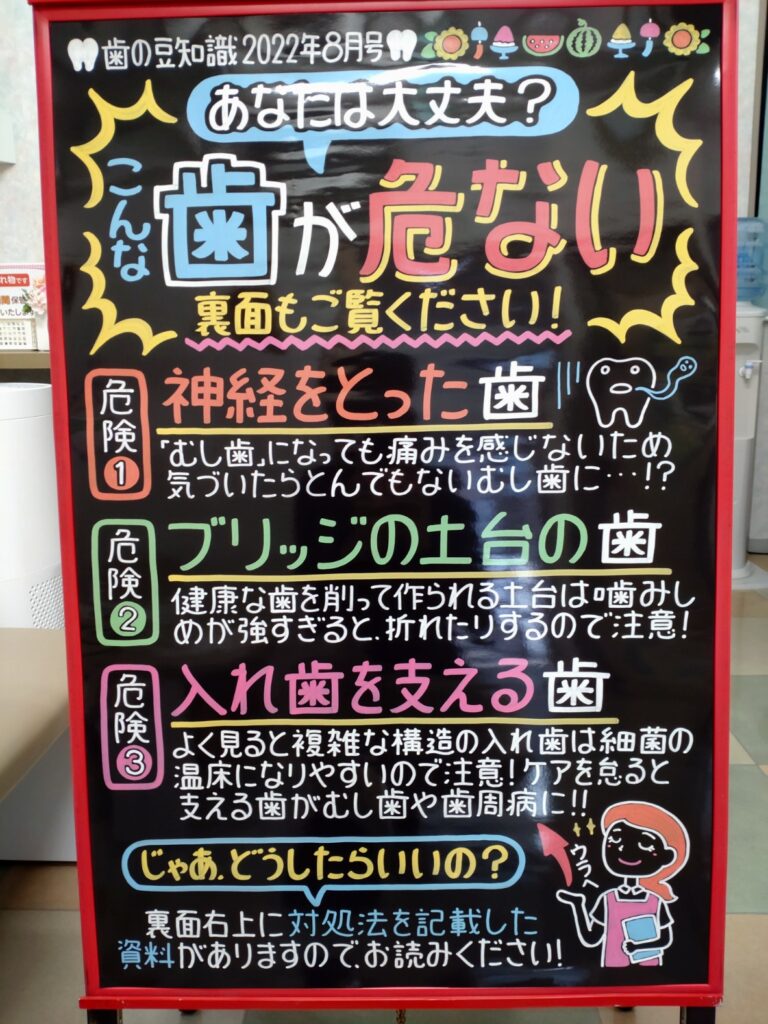 歯の豆知識 2022年8月号
あなたは大丈夫?
こんな歯が危ない
裏面もご覧ください!
危険1
神経をとった歯
「むし歯」になっても痛みを感じないため
気づいたらとんでもないむし歯に…!?
危険2
ブリッジの土台の歯
健康な歯を削って作られる土台は噛みし
めが強すぎると、折れたりするので注意!
危険3
入れ歯を支える歯
よく見ると複雑な構造の入れ歯は細菌の
温床になりやすいので注意!ケアを怠ると
支える歯がむし歯や歯周病に!!
じゃあ、どうしたらいいの?
ウラへ
裏面右上に対処法を記載した
資料がありますので、お読みください!
れ物です
いたします